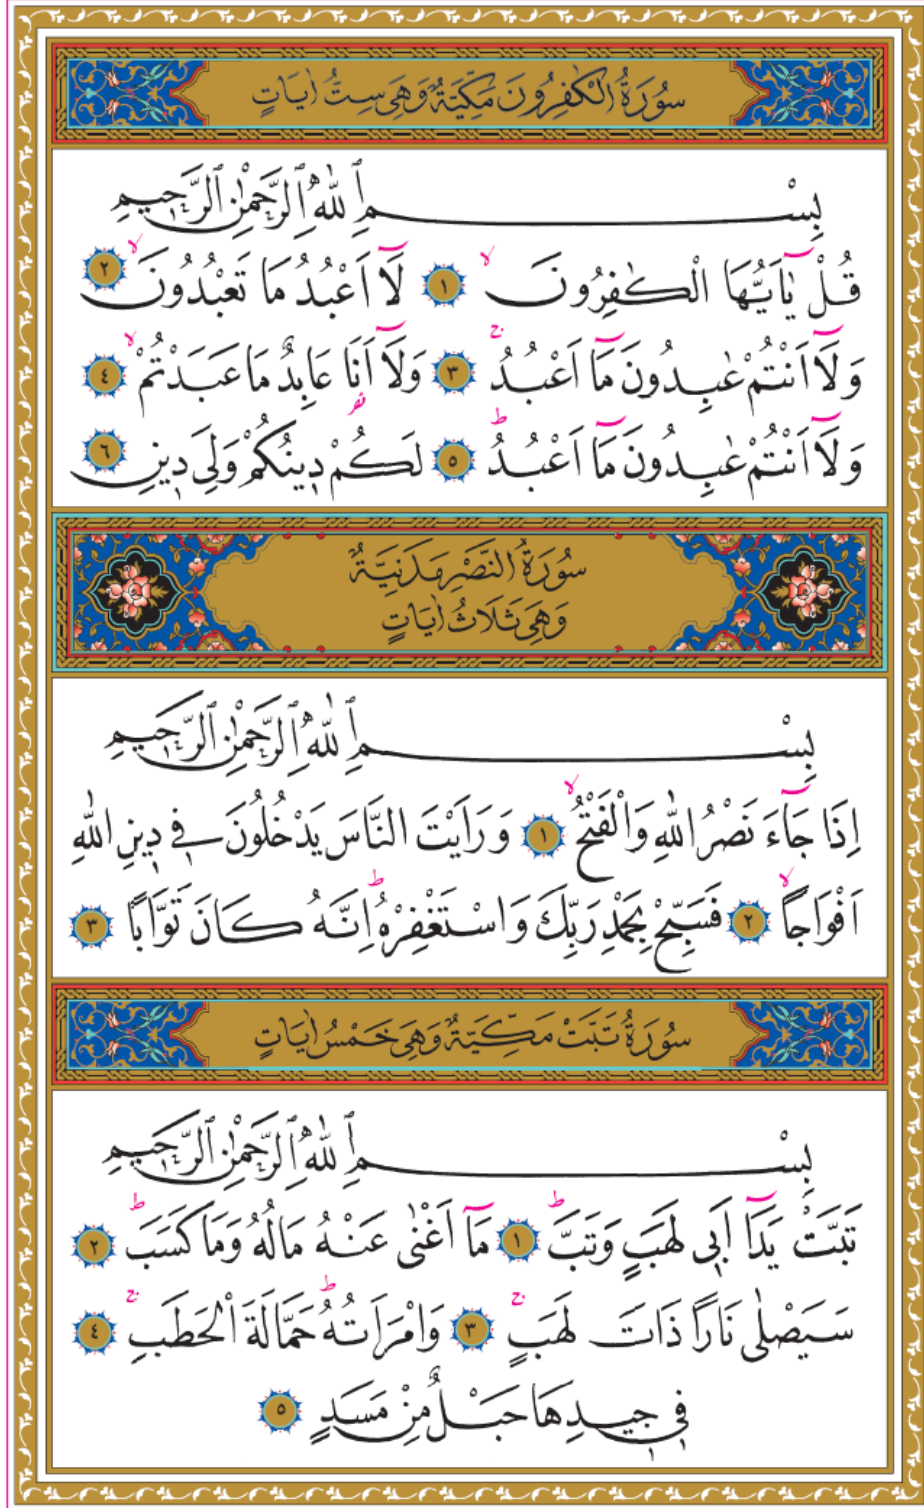 سُورَةُ الْكَافِرُونَ مَكِّيَّةٌ وَهِيَ سِتُّ اٰيَاتٍ
بِسْمِ اللّٰهِ الرَّحْمٰنِ الرَّحِيمِ
قُلْ يَٓا اَيُّهَا الْكَافِرُونَۙ ﴿١﴾ لَٓا اَعْبُدُ مَا تَعْبُدُونَۙ ﴿٢﴾
وَلَٓا اَنْتُمْ عَابِدُونَ مَٓا اَعْبُدُۚ ﴿٣﴾ وَلَٓا اَنَا۬ عَابِدٌ مَا عَبَدْتُمْۙ ﴿٤﴾
وَلَٓا اَنْتُمْ عَابِدُونَ مَٓا اَعْبُدُۜ ﴿٥﴾ لَكُمْ دِينُكُمْ وَلِيَ دِينِ ﴿٦﴾
سُورَةُ النَّصْرِ مَدَنِيَّةٌ
وَهِيَ ثَلَاثُ اٰيَاتٍ
بِسْمِ اللّٰهِ الرَّحْمٰنِ الرَّحِيمِ
اِذَا جَٓاءَ نَصْرُ اللّٰهِ وَالْفَتْحُۙ ﴿١﴾ وَرَاَيْتَ النَّاسَ يَدْخُلُونَ فِي دِينِ اللّٰهِ
اَفْوَاجًاۙ ﴿٢﴾ فَسَبِّحْ بِحَمْدِ رَبِّكَ وَاسْتَغْفِرْهُۜ اِنَّهُ كَانَ تَوَّابًا ﴿٣﴾
سُورَةُ تَبَّتْ مَكِّيَّةٌ وَهِيَ خَمْسُ اٰيَاتٍ
بِسْمِ اللّٰهِ الرَّحْمٰنِ الرَّحِيمِ
تَبَّتْ يَدَٓا اَبِي لَهَبٍ وَتَبَّۜ ﴿١﴾ مَٓا اَغْنٰى عَنْهُ مَالُهُ وَمَا كَسَبَۜ ﴿٢﴾
سَيَصْلٰى نَارًا ذَاتَ لَهَبٍۚ ﴿٣﴾ وَامْرَاَتُهُۜ حَمَّالَةَ الْحَطَبِۚ ﴿٤﴾
فِي جِيدِهَا حَبْلٌ مِنْ مَسَدٍ ﴿٥﴾